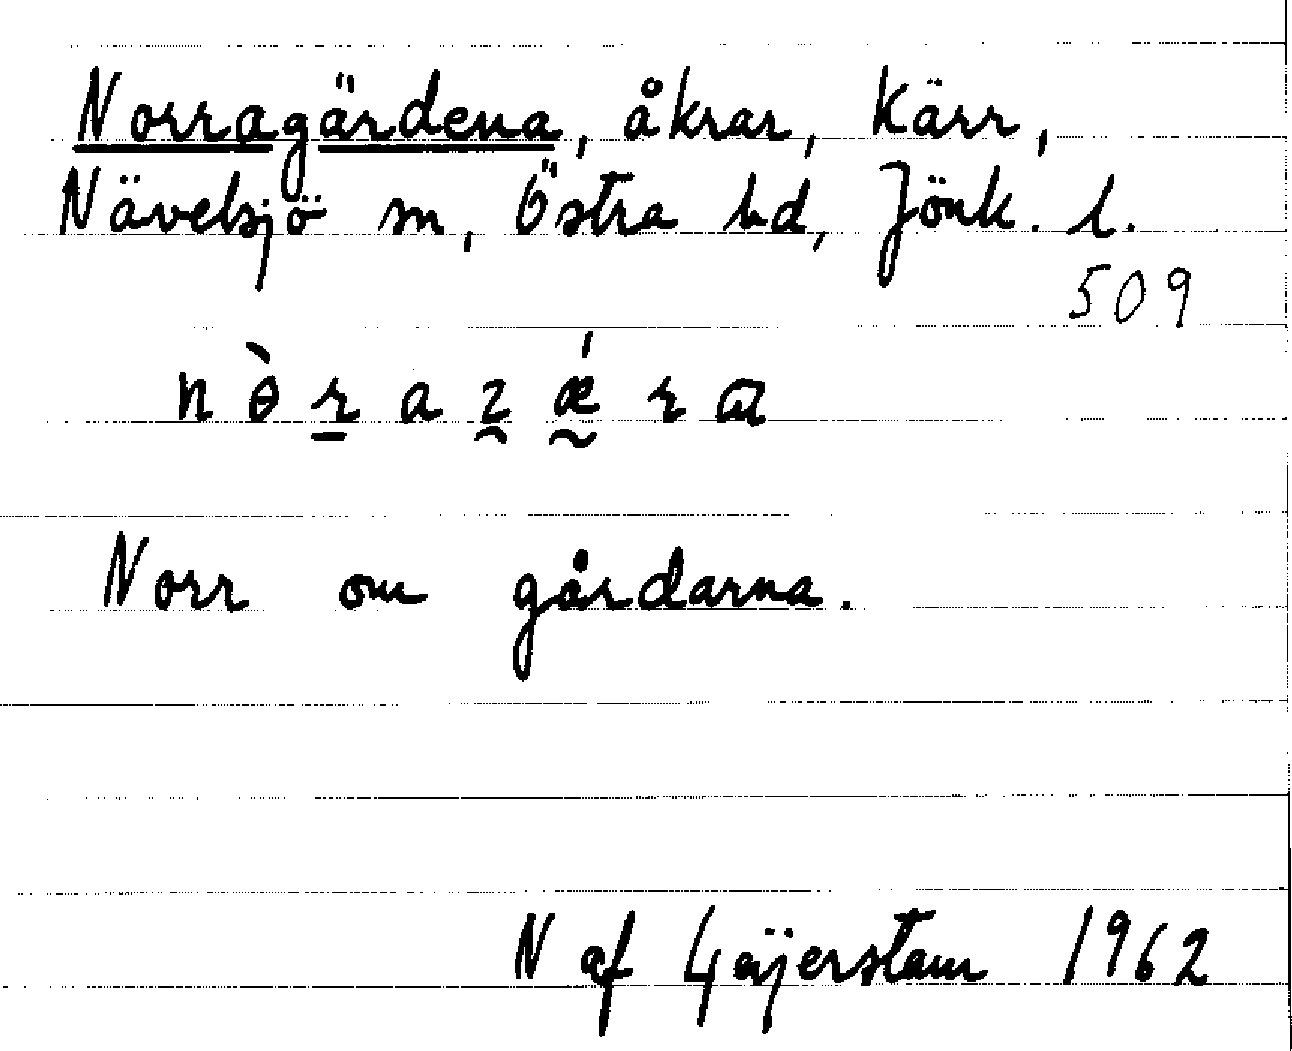 Norragärdena, åkrar, Kärr,
Nävelsjö sn, Östra hd, Jönk. l.
509
Norr om gårdarna.
N af Geijerstam 1962